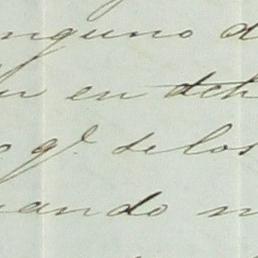 inguno d
en deh
e q.e de los
uando n